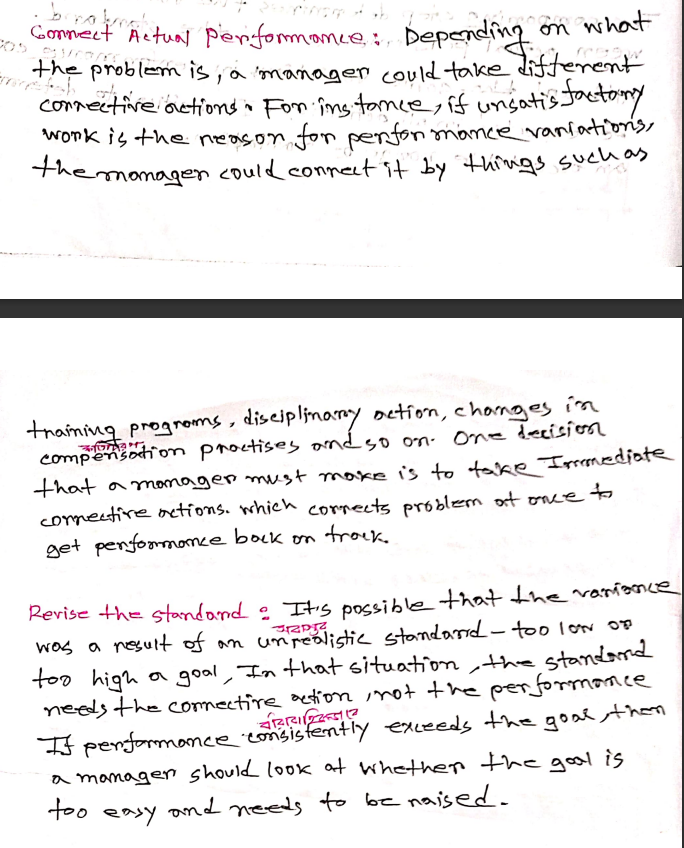 Correct Actual Performance: Depending on what
the problem is, a manager could take different
corrective actions. For instance, if unsatisfactory
work is the reason for performance variations,
the manager could correct it by things such as
training programs, disciplinary action, changes in
compensation practises and so on. One decision
that a manager must make is to take Immediate
corrective actions. which corrects problem at once to
get performance back on track.
Revise the standard: It's possible that the variance
was a result of an unrealistic standard - too low or
too high a goal, In that situation, the standard
needs the corrective action, not the performance
If performance consistently exceeds the goal, then
a manager should look at whether the goal is
too easy and needs to be raised.